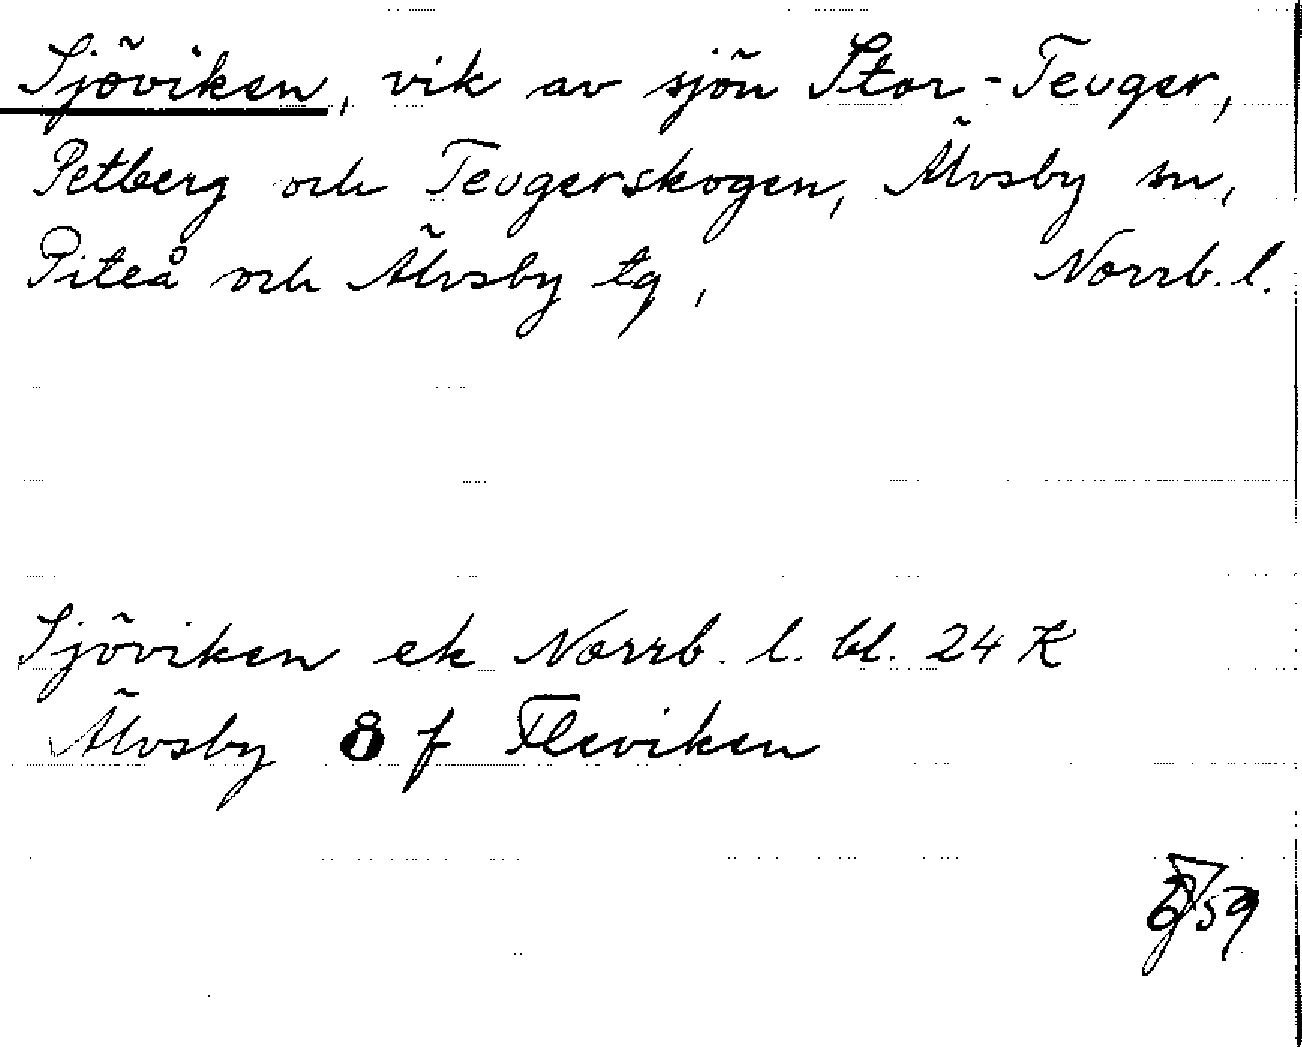 Sjöviken, vik av sjön Stor-Teuger,
Petberg och Teugerskogen, Älvsby sn,
Piteå och Älvsby tg, Norrb. l.
Sjöviken ek Norrb. l. bl. 24 K
Älvsby 8 f Fleviken
59